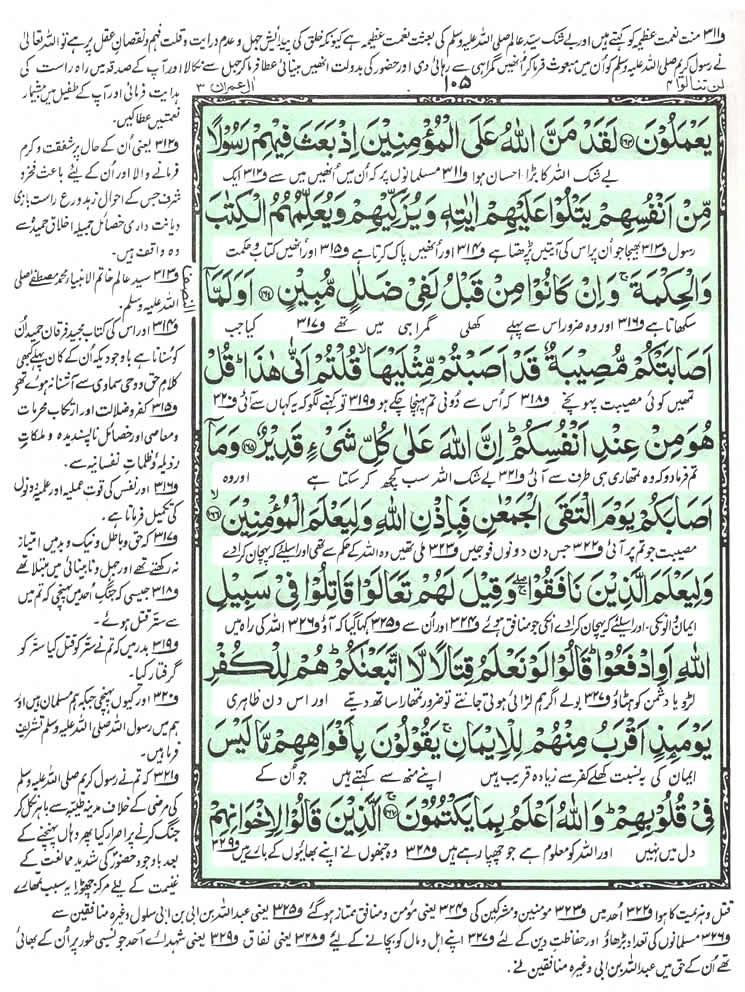 و۳۱۱ منت نعمت عظیمہ کو کہتے ہیں اور بے شک سیّد عالم صلی اللہ علیہ وسلم کی بعثت نعمت عظیمہ ہے کیونکہ خلق کی پیدائش جہل و عدم درایت و قلت فہم و نقصانِ عقل پر ہے تو اللہ تعالیٰ
نے رسول کریم صلی اللہ علیہ وسلم کو اُن میں مبعوث فرما کر اُنھیں گمراہی سے رہائی دی اور حضور کی بدولت انھیں بینائی عطا فرما کر جہل سے نکالا اور آپ کے صدقہ میں راہ راست کی
لن تنالوا ۴
۱۰۵
اٰل عمران ۳
ہدایت فرمائی اور آپ کے طفیل میں بیشمار
نعمتیں عطا کیں۔
و۳۱۲ یعنی اُن کے حال پر شفقت و کرم
فرمانے والا اور اُن کے لئے باعث فخر و
شرف جس کے احوال زہد ورع راست بازی
دیانت داری خصائل جمیلہ اخلاق حمیدہ سے
وہ واقف ہیں۔
و۳۱۳ سید عالم خاتم الانبیاء محمد مصطفےٰ صلی
اللہ علیہ وسلم۔
و۳۱۴ اور اس کی کتاب مجید فرقان حمید اُن
کو سناتا ہے باوجودیکہ اُن کے کان پہلے کبھی
کلام حق و وحی سماوی سے آشنا نہ ہوئے تھے
و۳۱۵ کفر و ضلالت اور ارتکاب محرمات
و معاصی اور خصائل ناپسندیدہ و ملکات
رذیلہ و ظلمات نفسانیہ سے۔
و۳۱۶ اور نفس کی قوت عملیہ اور علمیہ دونوں
کی تکمیل فرماتا ہے۔
و۳۱۷ کہ حق و باطل و نیک و بد میں امتیاز
نہ رکھتے تھے اور جہل و نابینائی میں مبتلا تھے
و۳۱۸ جیسی کہ جنگِ اُحد میں پہنچی کہ تم میں
سے ستّر قتل ہوئے۔
و۳۱۹ بدر میں کہ تم نے ستّر کو قتل کیا ستّر کو
گرفتار کیا۔
و۳۲۰ اور کیوں پہنچی جبکہ ہم مسلمان ہیں اور
ہم میں رسول اللہ صلی اللہ علیہ وسلم تشریف
فرما ہیں۔
و۳۲۱ کہ تم نے رسول کریم صلی اللہ علیہ وسلم
کی مرضی کے خلاف مدینہ طیبہ سے باہر نکل کر
جنگ کرنے پر اصرار کیا پھر وہاں پہنچنے کے
بعد باوجود حضور کی شدید ممانعت کے
غنیمت کے لئے مرکز چھوڑا یہ سبب تمھارے
النصف
يَعْمَلُوْنَ ﴿۱۶۳﴾ لَقَدْ مَنَّ اللّٰهُ عَلَى الْمُؤْمِنِيْنَ اِذْ بَعَثَ فِيْهِمْ رَسُوْلًا
بے شک اللہ کا بڑا احسان ہوا و۳۱۱ مسلمانوں پر کہ اُن میں اُنھیں میں سے و۳۱۲ ایک
مِّنْ اَنْفُسِهِمْ يَتْلُوْا عَلَيْهِمْ اٰيٰتِهٖ وَيُزَكِّيْهِمْ وَيُعَلِّمُهُمُ الْكِتٰبَ
رسول و۳۱۳ بھیجا جو اُن پر اس کی آیتیں پڑھتا ہے و۳۱۴ اور اُنھیں پاک کرتا ہے و۳۱۵ اور اُنھیں کتاب و حکمت
وَالْحِكْمَةَ ۚ وَاِنْ كَانُوْا مِنْ قَبْلُ لَفِيْ ضَلٰلٍ مُّبِيْنٍ ﴿۱۶۴﴾ اَوَلَمَّآ
سکھاتا ہے و۳۱۶ اور وہ ضرور اس سے پہلے کھلی گمراہی میں تھے و۳۱۷ کیا جب
اَصَابَتْكُمْ مُّصِيْبَةٌ قَدْ اَصَبْتُمْ مِّثْلَيْهَا ۙ قُلْتُمْ اَنّٰى هٰذَا ؕ قُلْ
تمھیں کوئی مصیبت پہونچے و۳۱۸ کہ اُس سے دُونی تم پہنچا چکے ہو و۳۱۹ تو کہنے لگو کہ یہ کہاں سے آئی و۳۲۰
هُوَ مِنْ عِنْدِ اَنْفُسِكُمْ ؕ اِنَّ اللّٰهَ عَلٰى كُلِّ شَيْءٍ قَدِيْرٌ ﴿۱۶۵﴾ وَمَآ
تم فرما دو کہ وہ تمھاری ہی طرف سے آئی و۳۲۱ بے شک اللہ سب کچھ کر سکتا ہے اور وہ
اَصَابَكُمْ يَوْمَ الْتَقَى الْجَمْعٰنِ فَبِاِذْنِ اللّٰهِ وَلِيَعْلَمَ الْمُؤْمِنِيْنَ ﴿۱۶۶﴾ ۙ
مصیبت جو تم پر آئی و۳۲۲ جس دن دونوں فوجیں و۳۲۳ ملی تھیں وہ اللہ کے حکم سے تھی اور اسلئے کہ پہچان کرادے
وَلِيَعْلَمَ الَّذِيْنَ نَافَقُوْا ۚۖ وَقِيْلَ لَهُمْ تَعَالَوْا قَاتِلُوْا فِيْ سَبِيْلِ
ایمان والوں کی۔ اور اسلئے کہ پہچان کرادے انکی جو منافق ہوئے و۳۲۴ اور اُن سے و۳۲۵ کہا گیا کہ آؤ و۳۲۶ اللہ کی راہ میں
اللّٰهِ اَوِ ادْفَعُوْا ؕ قَالُوْا لَوْ نَعْلَمُ قِتَالًا لَّا اتَّبَعْنٰكُمْ ؕ هُمْ لِلْكُفْرِ
لڑو یا دشمن کو ہٹاؤ و۳۲۷ بولے اگر ہم لڑائی ہوتی جانتے تو ضرور تمھارا ساتھ دیتے اور اس دن ظاہری
يَوْمَئِذٍ اَقْرَبُ مِنْهُمْ لِلْاِيْمَانِ ۚ يَقُوْلُوْنَ بِاَفْوَاهِهِمْ مَّا لَيْسَ
ایمان کی بہ نسبت کھلے کفر سے زیادہ قریب ہیں اپنے منھ سے کہتے ہیں جو اُن کے
فِيْ قُلُوْبِهِمْ ؕ وَاللّٰهُ اَعْلَمُ بِمَا يَكْتُمُوْنَ ﴿۱۶۷﴾ ۚ اَلَّذِيْنَ قَالُوْا لِاِخْوَانِهِمْ
دل میں نہیں اور اللہ کو معلوم ہے جو چھپا رہے ہیں و۳۲۸ وہ جنھوں نے اپنے بھائیوں کے بارے میں و۳۲۹
قتل و ہزیمت کا ہوا و۳۲۲ اُحد میں و۳۲۳ مومنین و مشرکین کی و۳۲۴ یعنی مؤمن و منافق ممتاز ہو گئے و۳۲۵ یعنی عبداللہ بن ابی بن ابی سلول وغیرہ منافقین سے
و۳۲۶ مسلمانوں کی تعداد بڑھاؤ اور حفاظتِ دین کے لئے و۳۲۷ اپنے اہل و مال کو بچانے کے لئے و۳۲۸ یعنی نفاق و۳۲۹ یعنی شہدائے اُحد جو نسبی طور پر اُن کے بھائی
تھے اُن کے حق میں عبداللہ بن ابی وغیرہ منافقین نے۔